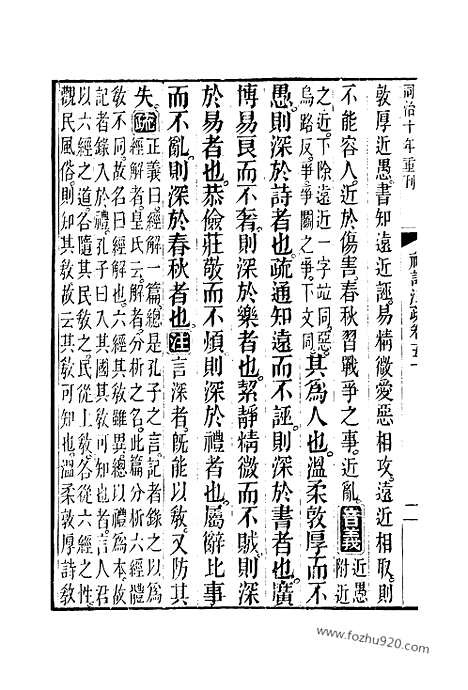 同治十年重刊
禮記注疏卷五十
二
敦厚近愚。書知遠近誣。易精微愛惡相攻。遠近相取則
不能容人。近於傷害。春秋習戰爭之事。近亂。音義近愚附近
之近。下除遠近一字竝同。惡烏路反。爭爭鬬之爭。下文同。其爲人也。溫柔敦厚而不
愚。則深於詩者也。疏通知遠而不誣。則深於書者也。廣
博易良而不奢。則深於樂者也。絜靜精微而不賊。則深
於易者也。恭儉莊敬而不煩。則深於禮者也。屬辭比事
而不亂。則深於春秋者也。注言深者。旣能以敎。又防其
失。疏正義曰。經解一篇總是孔子之言。記者錄之以爲經解者。皇氏云。解者分析之名。此篇分析六經體
敎不同。故名曰經解也。六經其敎雖異。總以禮爲本。故記者錄入於禮。孔子曰入其國其敎可知也者。言人君
以六經之道。各隨其民敎之。民從上敎。各從六經之性。觀民風俗。則知其敎。故云其敎可知也。溫柔敦厚詩敎
www.fozhu920.com